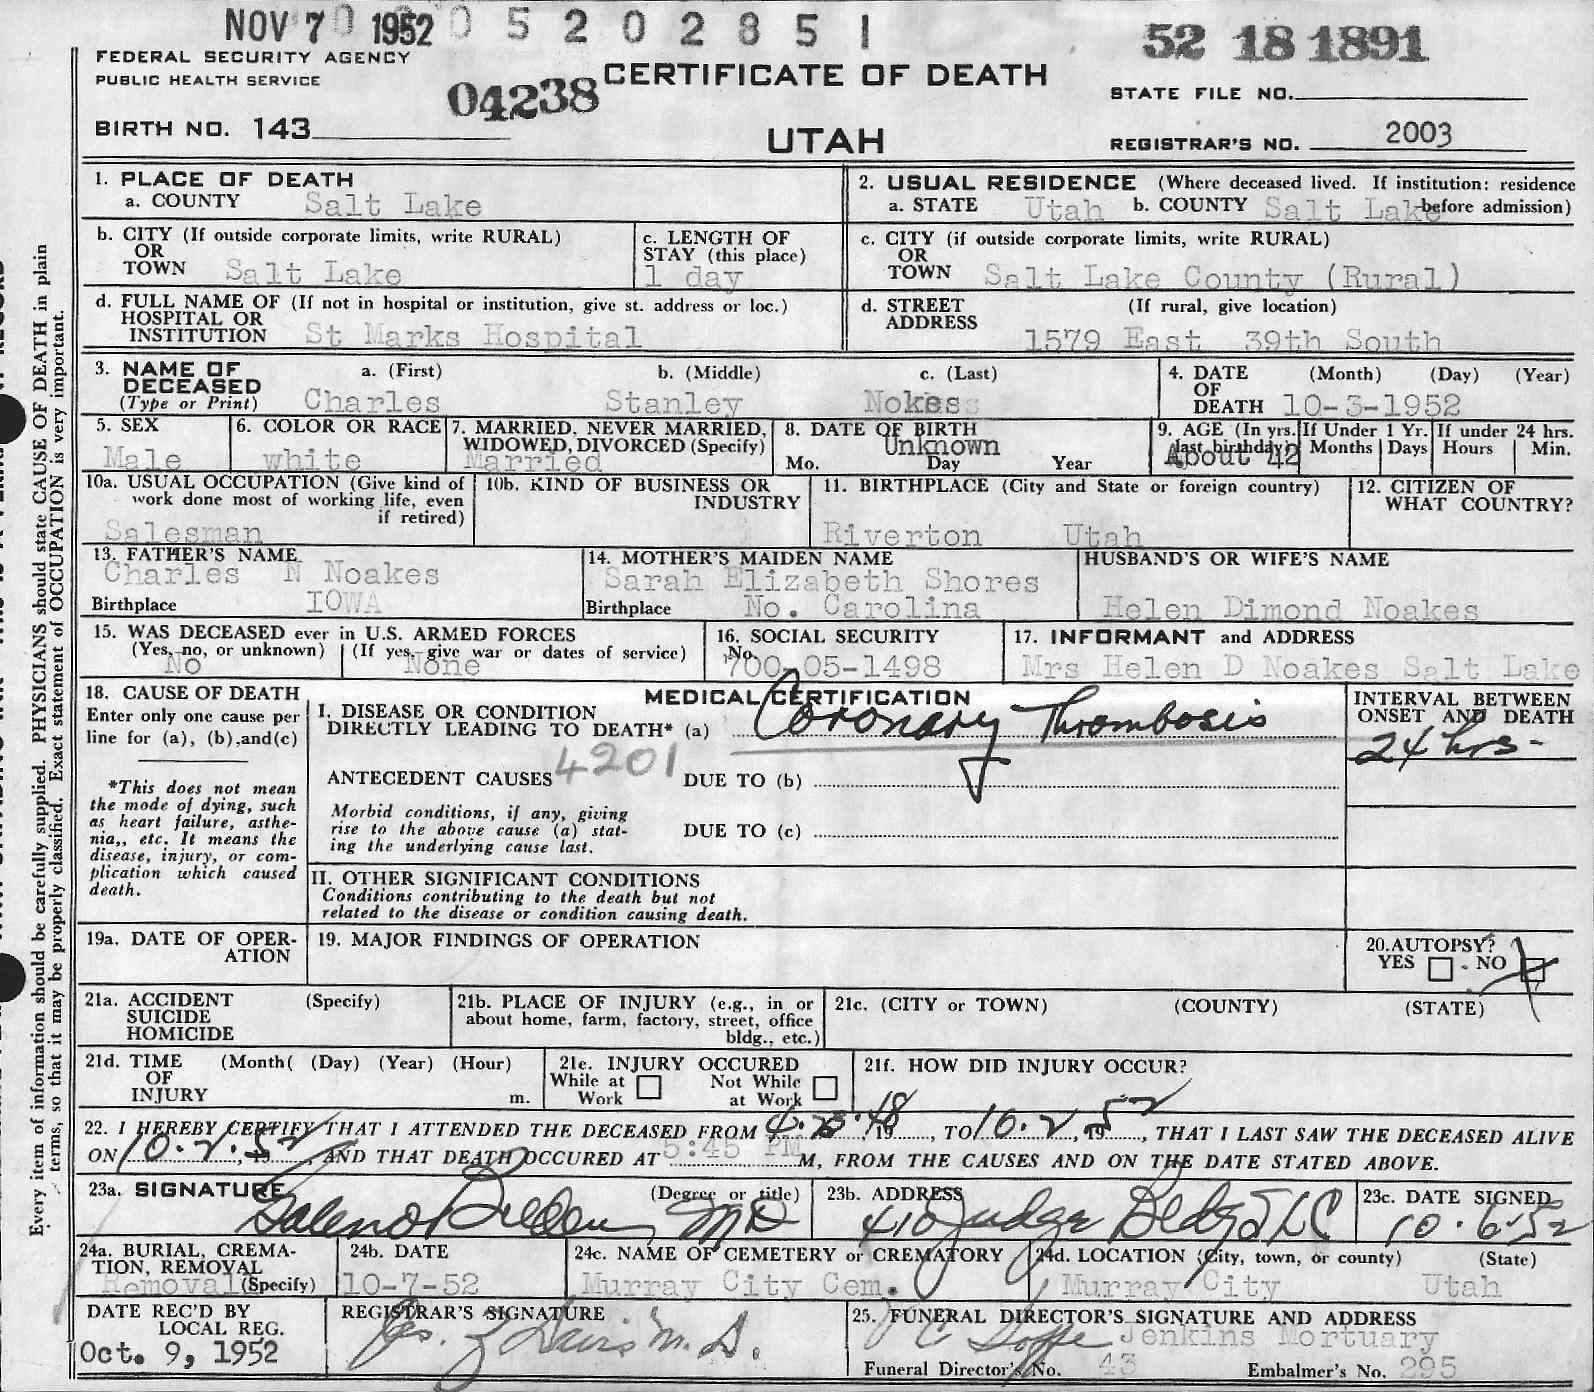 NOV 7 1952 0 5 2 0 2 8 5 1
52 18 1891
FEDERAL SECURITY AGENCY
PUBLIC HEALTH SERVICE
04238
CERTIFICATE OF DEATH
STATE FILE NO.
BIRTH NO. 143
UTAH
REGISTRAR'S NO. 2003
1. PLACE OF DEATH
a. COUNTY Salt Lake
2. USUAL RESIDENCE (Where deceased lived. If institution: residence
a. STATE Utah b. COUNTY Salt Lake before admission)
b. CITY (If outside corporate limits, write RURAL)
OR
TOWN Salt Lake
c. LENGTH OF
STAY (this place)
1 day
c. CITY (if outside corporate limits, write RURAL)
OR
TOWN Salt Lake County (Rural)
d. FULL NAME OF (If not in hospital or institution, give st. address or loc.)
HOSPITAL OR
INSTITUTION St Marks Hospital
d. STREET (If rural, give location)
ADDRESS
1579 East 39th South
3. NAME OF
DECEASED
(Type or Print)
a. (First) b. (Middle) c. (Last)
Charles Stanley Nokes
4. DATE (Month) (Day) (Year)
OF
DEATH 10-3-1952
5. SEX
Male
6. COLOR OR RACE
white
7. MARRIED, NEVER MARRIED,
WIDOWED, DIVORCED (Specify)
Married
8. DATE OF BIRTH
Unknown
Mo. Day Year
9. AGE (In yrs.
last birthday)
About 42
If Under 1 Yr.
Months Days
If under 24 hrs.
Hours Min.
10a. USUAL OCCUPATION (Give kind of
work done most of working life, even
if retired)
Salesman
10b. KIND OF BUSINESS OR
INDUSTRY
11. BIRTHPLACE (City and State or foreign country)
Riverton Utah
12. CITIZEN OF
WHAT COUNTRY?
13. FATHER'S NAME
Charles N Noakes
Birthplace IOWA
14. MOTHER'S MAIDEN NAME
Sarah Elizabeth Shores
Birthplace No. Carolina
HUSBAND'S OR WIFE'S NAME
Helen Dimond Noakes
15. WAS DECEASED ever in U.S. ARMED FORCES
(Yes, no, or unknown) (If yes, give war or dates of service)
No None
16. SOCIAL SECURITY
No.
700-05-1498
17. INFORMANT and ADDRESS
Mrs Helen D Noakes Salt Lake
18. CAUSE OF DEATH
Enter only one cause per
line for (a), (b), and (c)
*This does not mean
the mode of dying, such
as heart failure, asthe-
nia,, etc. It means the
disease, injury, or com-
plication which caused
death.
MEDICAL CERTIFICATION
I. DISEASE OR CONDITION
DIRECTLY LEADING TO DEATH* (a) Coronary Thrombosis
INTERVAL BETWEEN
ONSET AND DEATH
24 hrs-
4201
ANTECEDENT CAUSES DUE TO (b)
Morbid conditions, if any, giving
rise to the above cause (a) stat-
ing the underlying cause last.
DUE TO (c)
II. OTHER SIGNIFICANT CONDITIONS
Conditions contributing to the death but not
related to the disease or condition causing death.
19a. DATE OF OPER-
ATION
19. MAJOR FINDINGS OF OPERATION
20. AUTOPSY?
YES NO
21a. ACCIDENT (Specify)
SUICIDE
HOMICIDE
21b. PLACE OF INJURY (e.g., in or
about home, farm, factory, street, office
bldg., etc.)
21c. (CITY or TOWN) (COUNTY) (STATE)
21d. TIME (Month( (Day) (Year) (Hour)
OF
INJURY m.
21e. INJURY OCCURED
While at Work Not While at Work
21f. HOW DID INJURY OCCUR?
22. I HEREBY CERTIFY THAT I ATTENDED THE DECEASED FROM 4.23.48, 19, TO 10.2, 1952, THAT I LAST SAW THE DECEASED ALIVE
ON 10.2.52, 19, AND THAT DEATH OCCURED AT 5:45 PM M, FROM THE CAUSES AND ON THE DATE STATED ABOVE.
23a. SIGNATURE (Degree or title)
MD
23b. ADDRESS
410 Judge Bldg SLC
23c. DATE SIGNED
10-6-52
24a. BURIAL, CREMA-
TION, REMOVAL
Removal (Specify)
24b. DATE
10-7-52
24c. NAME OF CEMETERY or CREMATORY
Murray City Cem.
24d. LOCATION (City, town, or county) (State)
Murray City Utah
DATE REC'D BY
LOCAL REG.
Oct. 9, 1952
REGISTRAR'S SIGNATURE
Jas. Z Davis M.D.
25. FUNERAL DIRECTOR'S SIGNATURE AND ADDRESS
Jenkins Mortuary
Funeral Director's No. 43 Embalmer's No. 295
Every item of information should be carefully supplied. PHYSICIANS should state CAUSE OF DEATH in plain
terms, so that it may be properly classified. Exact statement of OCCUPATION is very important.